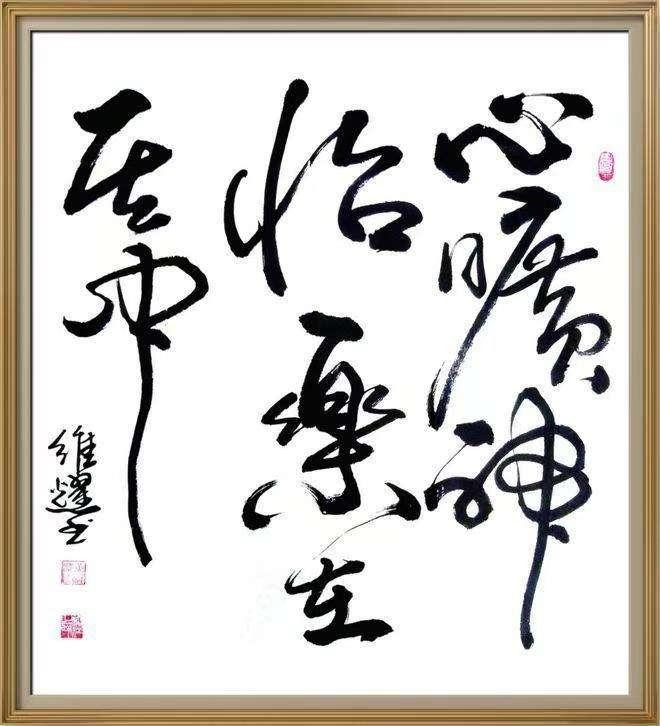 心曠神
怡樂在
其中
維耀书